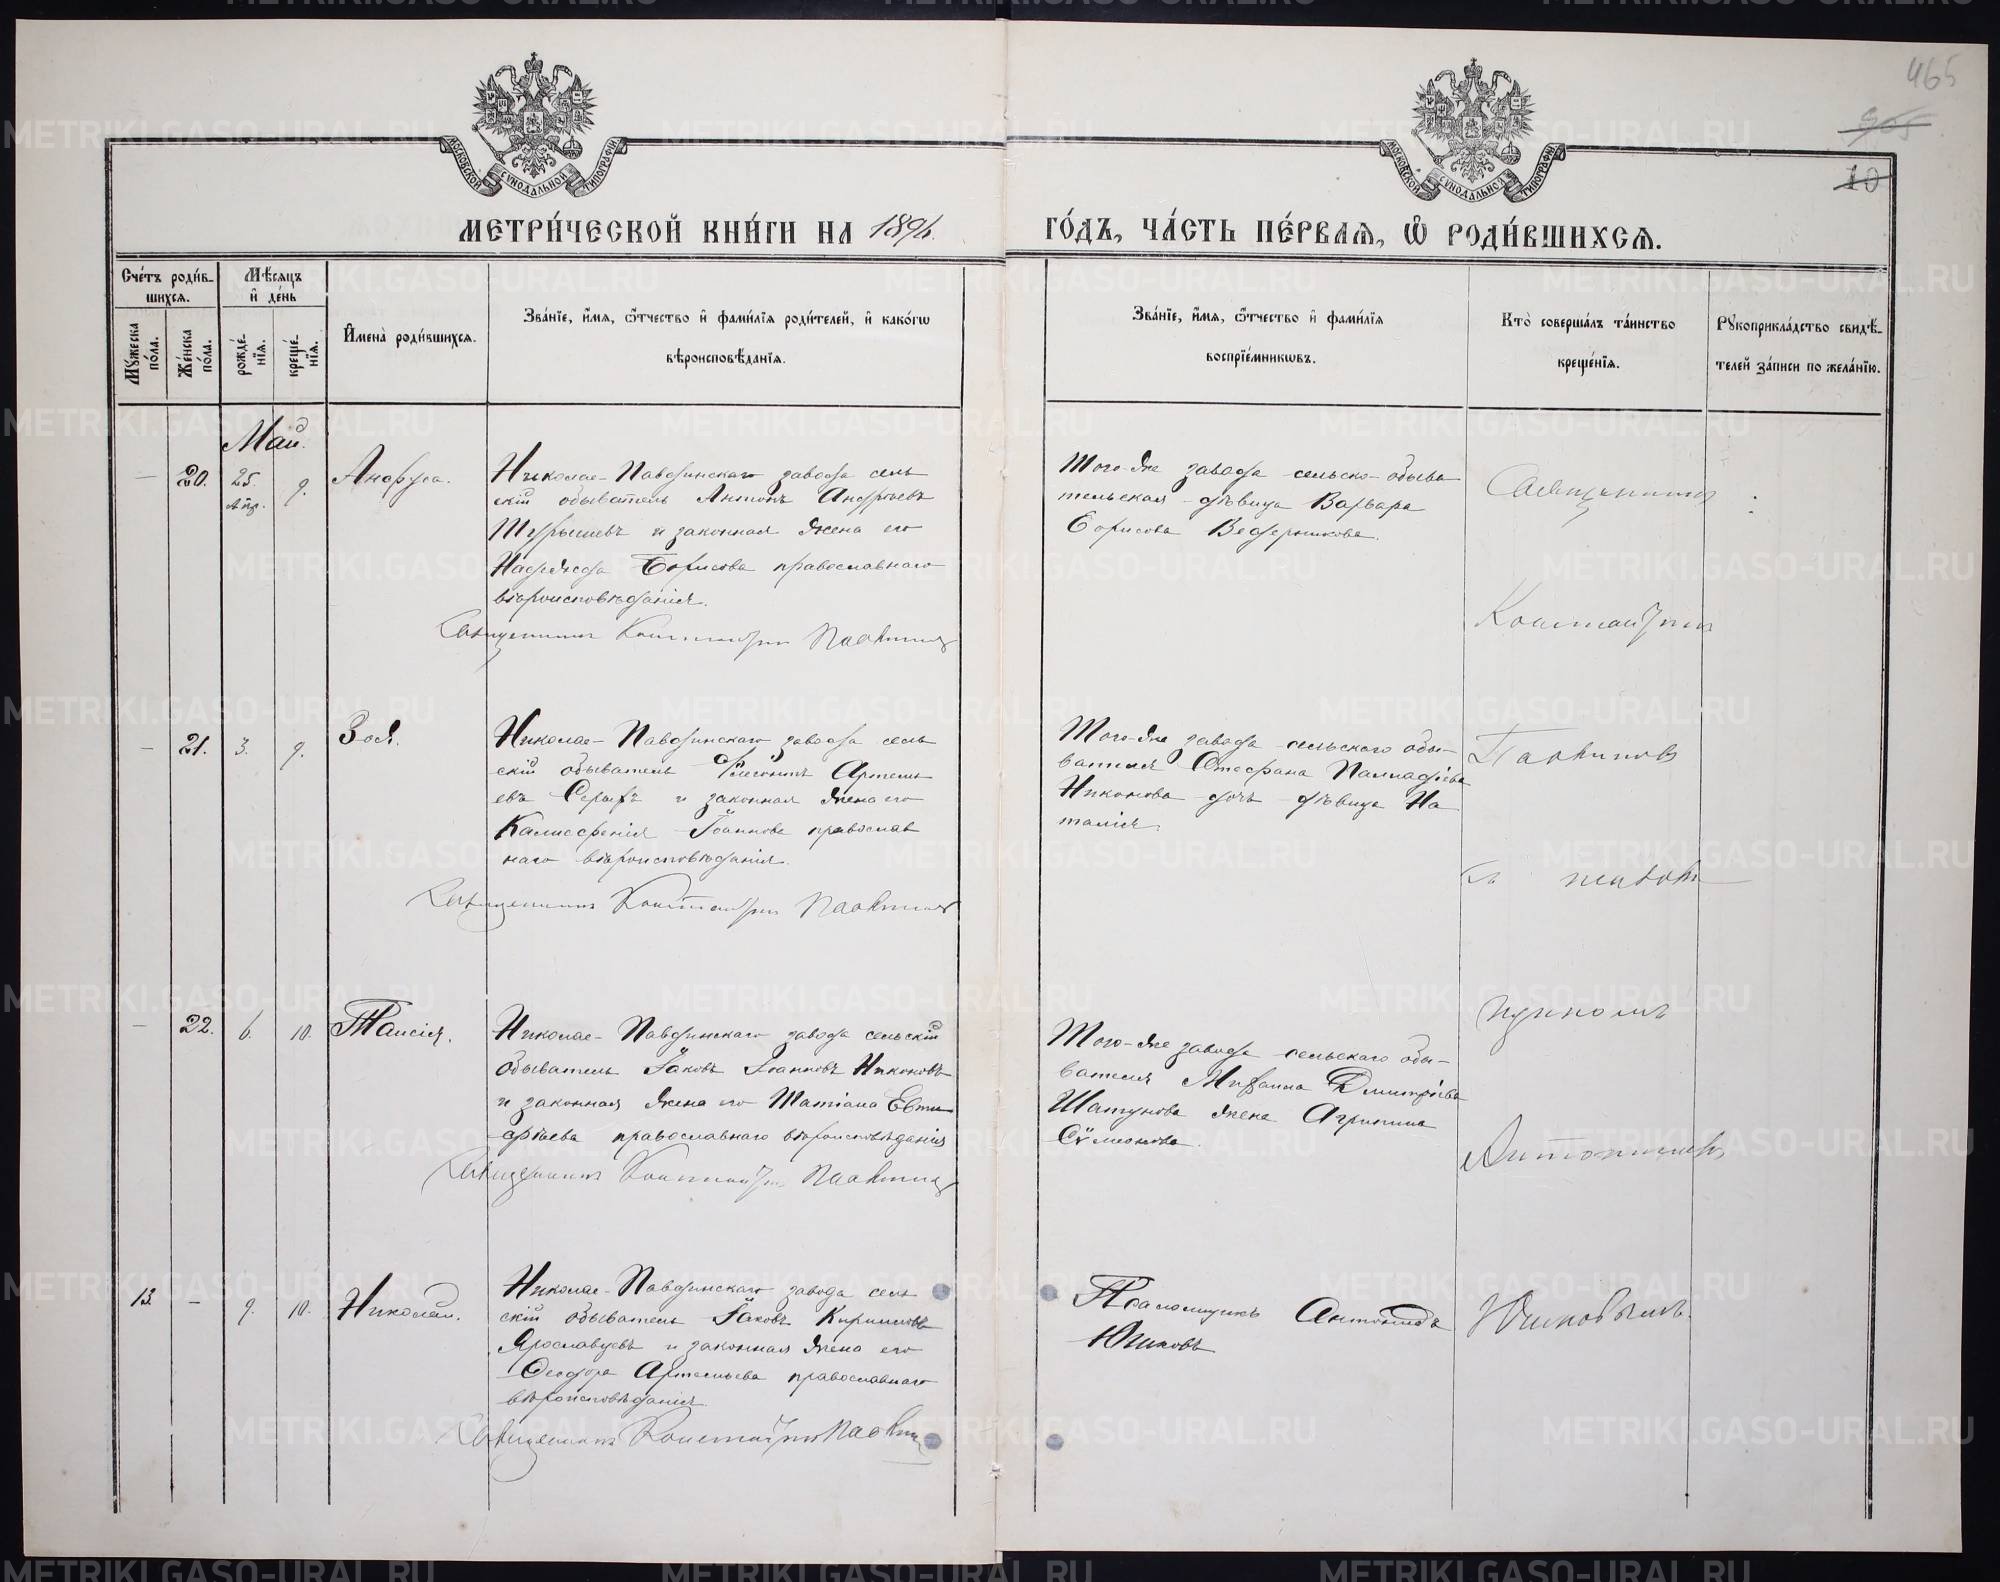 465
905
10
МОСКОВСКОЙ СѴНОДАЛЬНОЙ ТИПОГРАФІИ
МОСКОВСКОЙ СѴНОДАЛЬНОЙ ТИПОГРАФІИ
МЕТРИ́ЧЕСКОЙ КНИ́ГИ НА 1896.
ГО́ДЪ, ЧА́СТЬ ПЕ́РВАѦ, Ѡ҆ РОДИ́ВШИХСѦ.
Сче́тъ роди́в-
шихсѧ.
Мѣ́сѧцъ
и҆ де́нь
Мꙋ́жеска по́ла.
Же́нска по́ла.
рожде́-нїѧ.
креще́-нїѧ.
И҆мена̀ роди́вшихсѧ.
Зва́нїе, и҆́мѧ, ѻ҆́тчество и҆ фами́лїѧ роди́телей, и҆ како́гѡ
вѣроисповѣ́данїѧ.
Зва́нїе, и҆́мѧ, ѻ҆́тчество и҆ фами́лїѧ
воспрїе́мникѡвъ.
Кто̀ соверша́лъ та́инство
креще́нїѧ.
Рꙋкоприкла́дство свидѣ́-
телей за́писи по жела́нїю.
Май.
— 20. 25. Апр. 9. Анфуса.
Николае-Павдинскаго завода сель
скій обыватель Антонъ Андреевъ
и законная жена его
Надежда Борисова православнаго
вѣроисповѣданія.
Священникъ Константинъ
Того-же завода сельско-обыва
тельская дѣвица Варвара
Борисова Ведерникова.
Священникъ
Константинъ
— 21. 3. 9. Зоя.
Николае-Павдинскаго завода сель
скій обыватель Флегонтъ Артемь
евъ и законная жена его
Каллисфенія Іоаннова православ
наго вѣроисповѣданія.
Священникъ Константинъ
Того-же завода сельскаго обы-
вателя Стефана Палладіева
Никонова дочь дѣвица На
талія.
съ псалом
— 22. 6. 10. Таисія.
Николае-Павдинскаго завода сельскій
обыватель Іаковъ Іоанновъ Никоновъ
и законная жена его Татіана Евти
фіева православнаго вѣроисповѣданія
Священникъ Константинъ
Того-же завода сельскаго обы-
вателя Михаила Димитріева
Шатунова жена Агрипина
Сѵмеонова.
щикомъ
Антониномъ
13. — 9. 10. Николай.
Николае-Павдинскаго завода сель
скій обыватель Іаковъ Кирилловъ
Ярославцевъ и законная жена его
Феодора Артемьева православнаго
вѣроисповѣданія.
Священникъ Константинъ
Псаломщикъ Антонинъ
Юшковъ
Юшковымъ.
METRIKI.GASO-URAL.RU